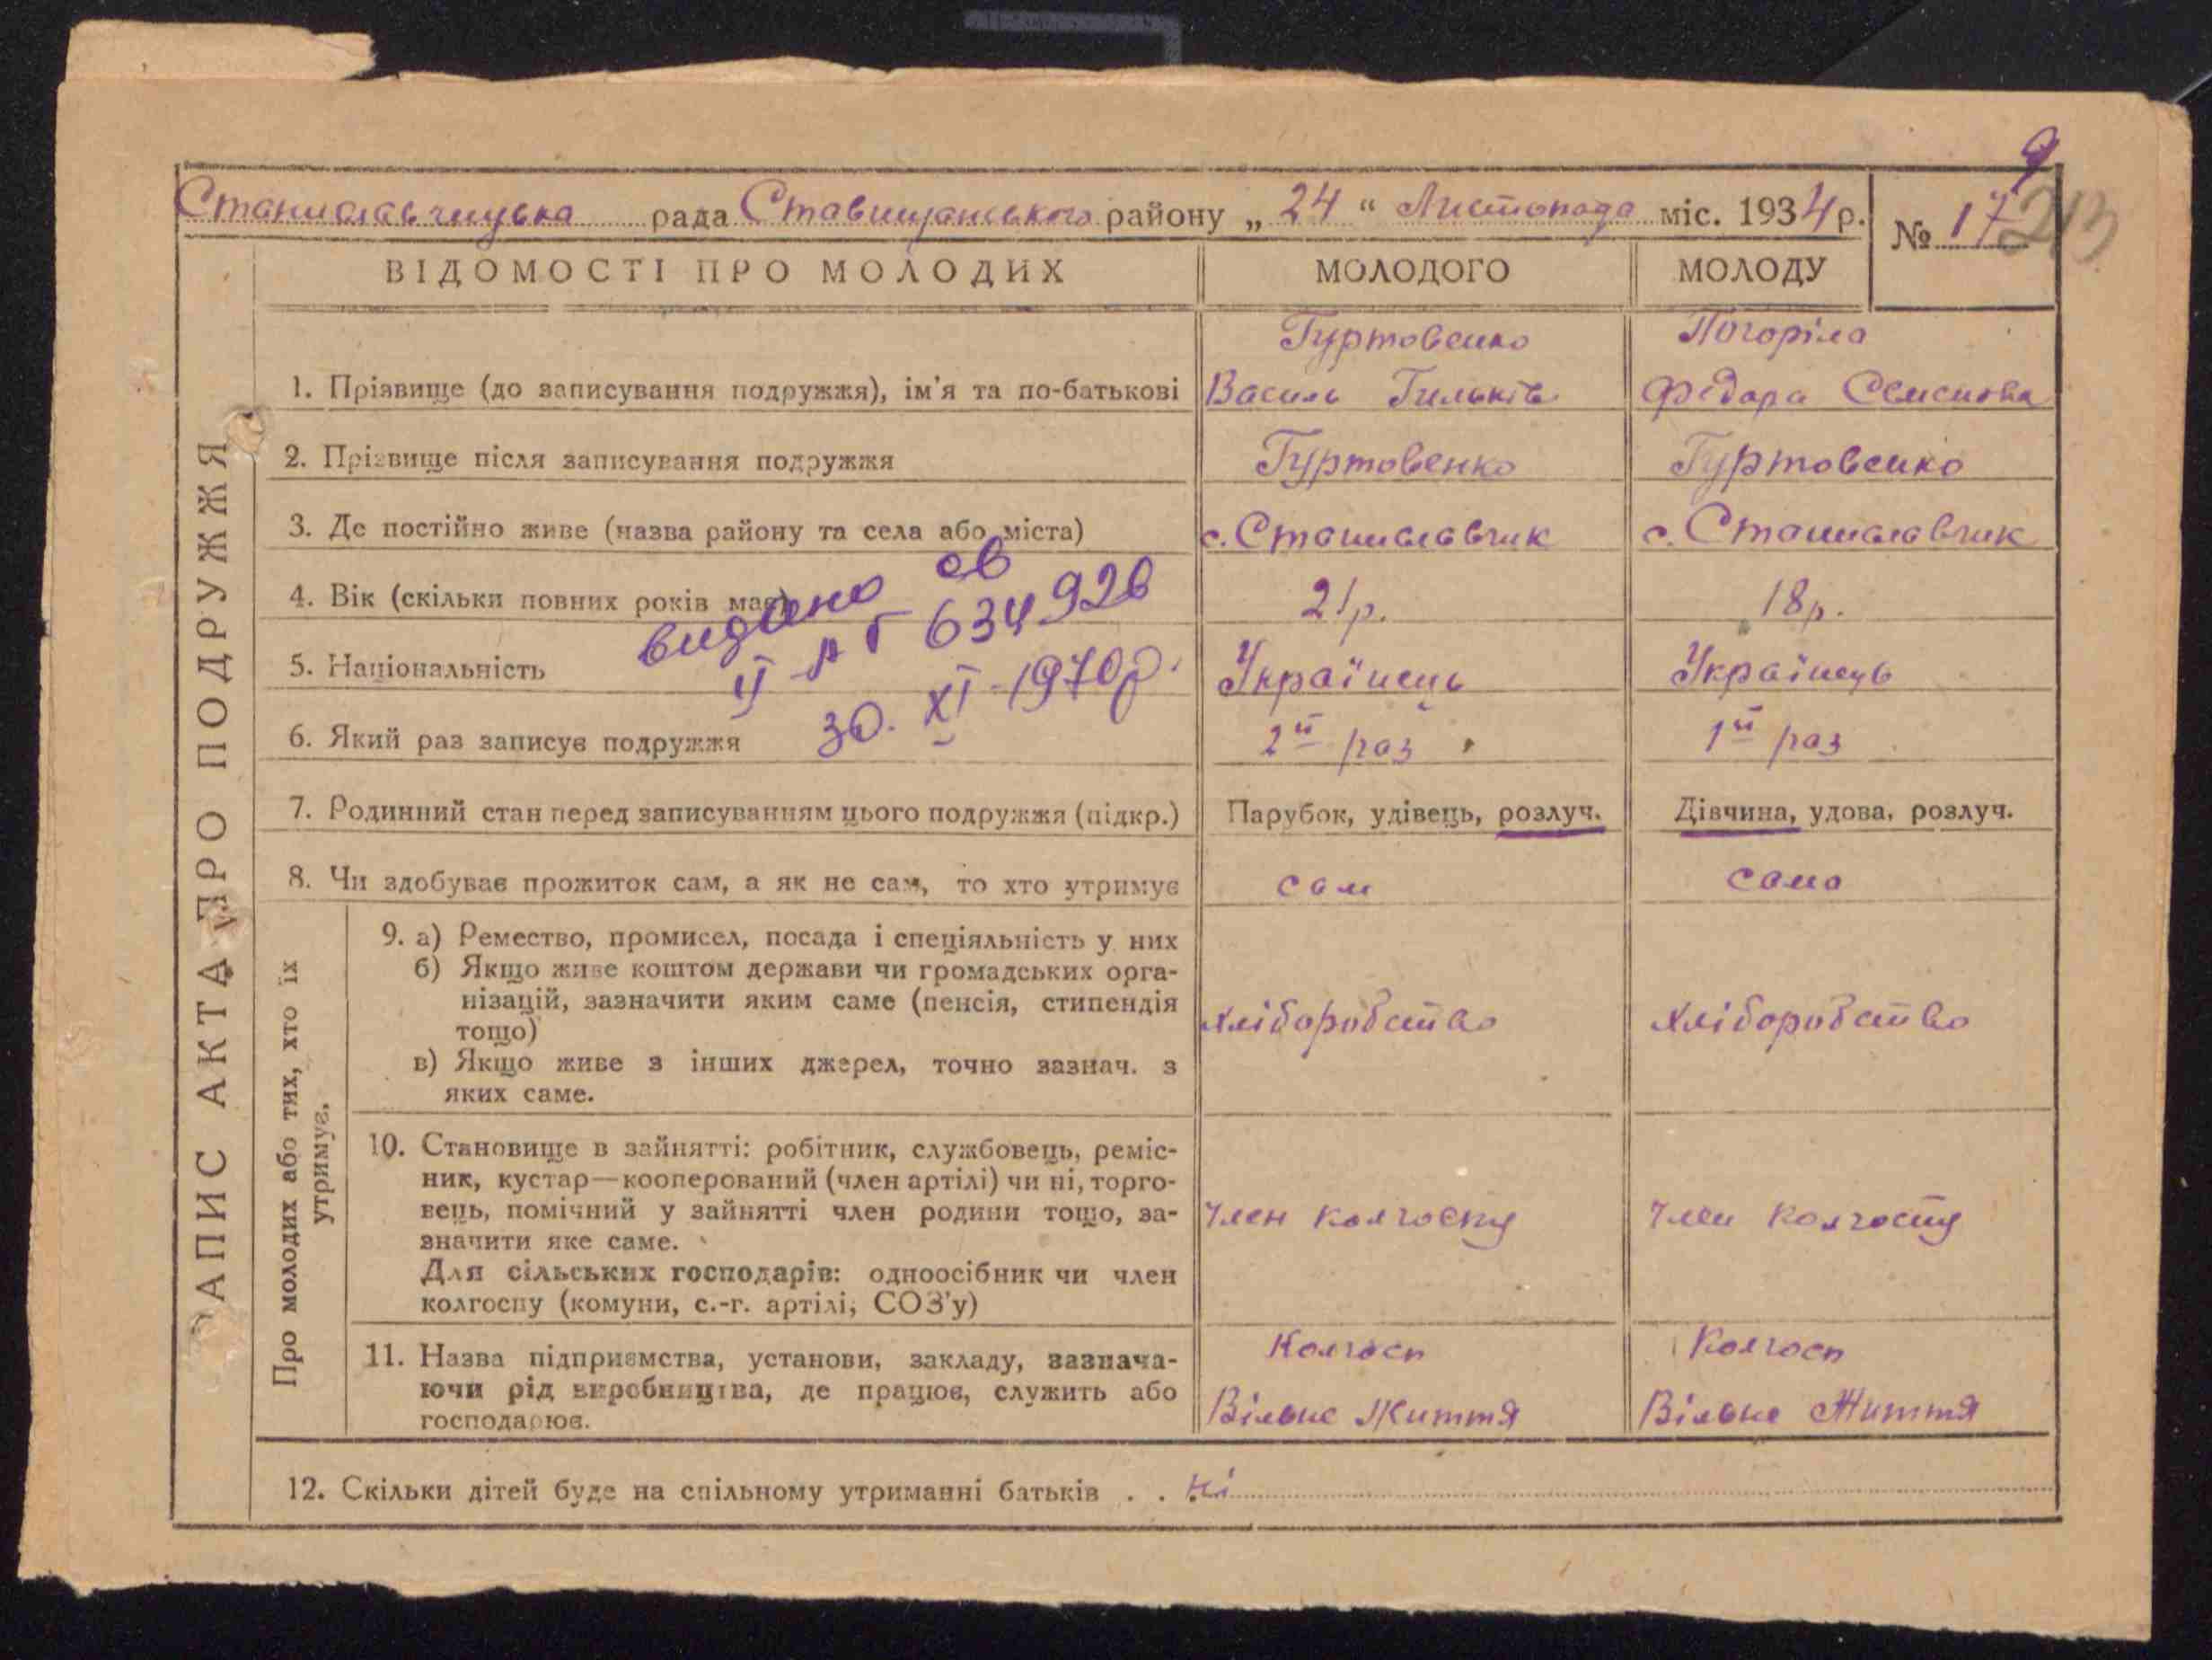 9
Станиславчицька рада Ставищанського району „ 24 “ Листопада міс. 1934 р.
№ 17 213
ЗАПИС АКТА ПРО ПОДРУЖЖЯ
ВІДОМОСТІ ПРО МОЛОДИХ МОЛОДОГО МОЛОДУ
Гуртовенко Погоріла
1. Прізвище (до записування подружжя), ім'я та по-батькові Василь Гильків Федора Семенова
2. Прізвище після записування подружжя Гуртовенко Гуртовенко
3. Де постійно живе (назва району та села або міста) с. Станиславчик с. Станиславчик
4. Вік (скільки повних років має) 21р. 18р.
видано св
II АГ 634926
30. XI 1970р.
5. Національність Українець Українець
6. Який раз записує подружжя 2й раз 1й раз
7. Родинний стан перед записуванням цього подружжя (підкр.) Парубок, удівець, розлуч. Дівчина, удова, розлуч.
8. Чи здобуває прожиток сам, а як не сам, то хто утримує сам сама
Про молодих або тих, хто їх
утримує.
9. а) Ремество, промисел, посада і спеціяльність у них
б) Якщо живе коштом держави чи громадських орга-
нізацій, зазначити яким саме (пенсія, стипендія
тощо) хліборобство хліборобство
в) Якщо живе з інших джерел, точно зазнач. з
яких саме.
10. Становище в зайнятті: робітник, службовець, реміс-
ник, кустар—кооперований (член артілі) чи ні, торго-
вець, помічний у зайнятті член родини тощо, за- Член колгоспу Член колгоспу
значити яке саме.
Для сільських господарів: одноосібник чи член
колгоспу (комуни, с.-г. артілі, СОЗ'у)
11. Назва підприємства, установи, закладу, зазнача- Колгосп Колгосп
ючи рід виробництва, де працює, служить або Вільне Життя Вільне Життя
господарює.
12. Скільки дітей буде на спільному утриманні батьків . . ні